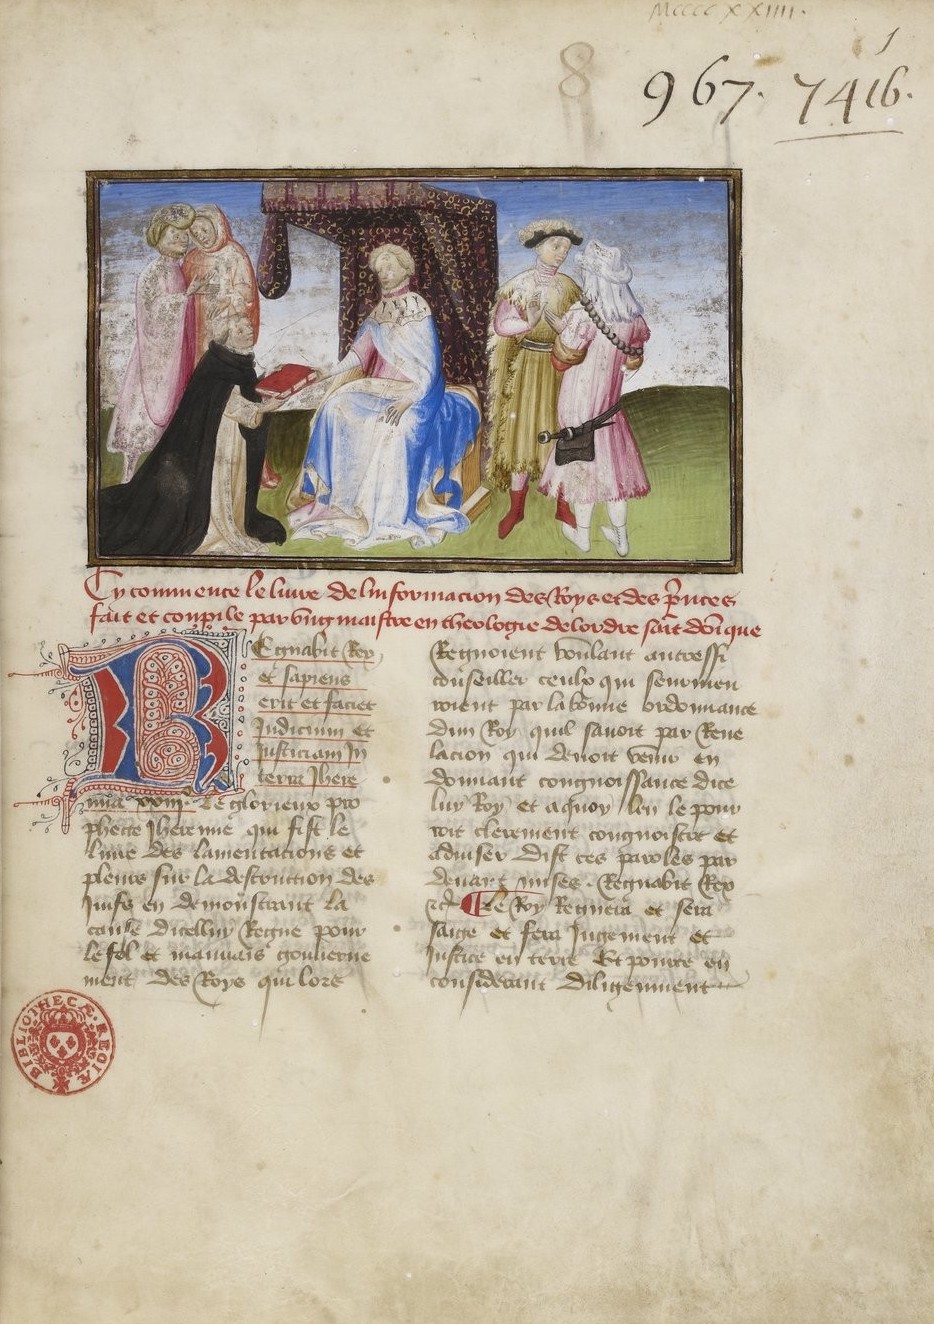 Mccccxxiiii.
1
8
967. 7416.
Cy commence le livre de linformacion des Roys et des prices
fait et compile par ung maistre en theologie de lordre saīt domīque
Regnabit Rex
et sapiens
erit et faciet
Judicium et
Justiciam In
terra Jhere
mia xxiij. Le glorieux pro
phette Jheremie qui fist le
livre des lamentacions et
pleurs sur la destruction des
Juifs en demonstrant la
cause dicelluy Regne pour
le fol et mauvais gouverne
ment des Roys qui lors
Regnoient voulant aut essi
conseiller ceulx qui seurmen
roient par la bonne ordonnance
dun Roy quil savoit par Reve
lacion qui devoit venir en
donnant congnoissance dice
luy Roy et a quoy len le pour
roit clerement congnoistre et
adviser Dist ces paroles par
devant mises. Regnabit Rex
etc. Le Roy Regnera et sera
saige et fera Jugement et
Justice en terre Et pource en
considerant diligemment
BIBLIOTHECÆ REGIÆ